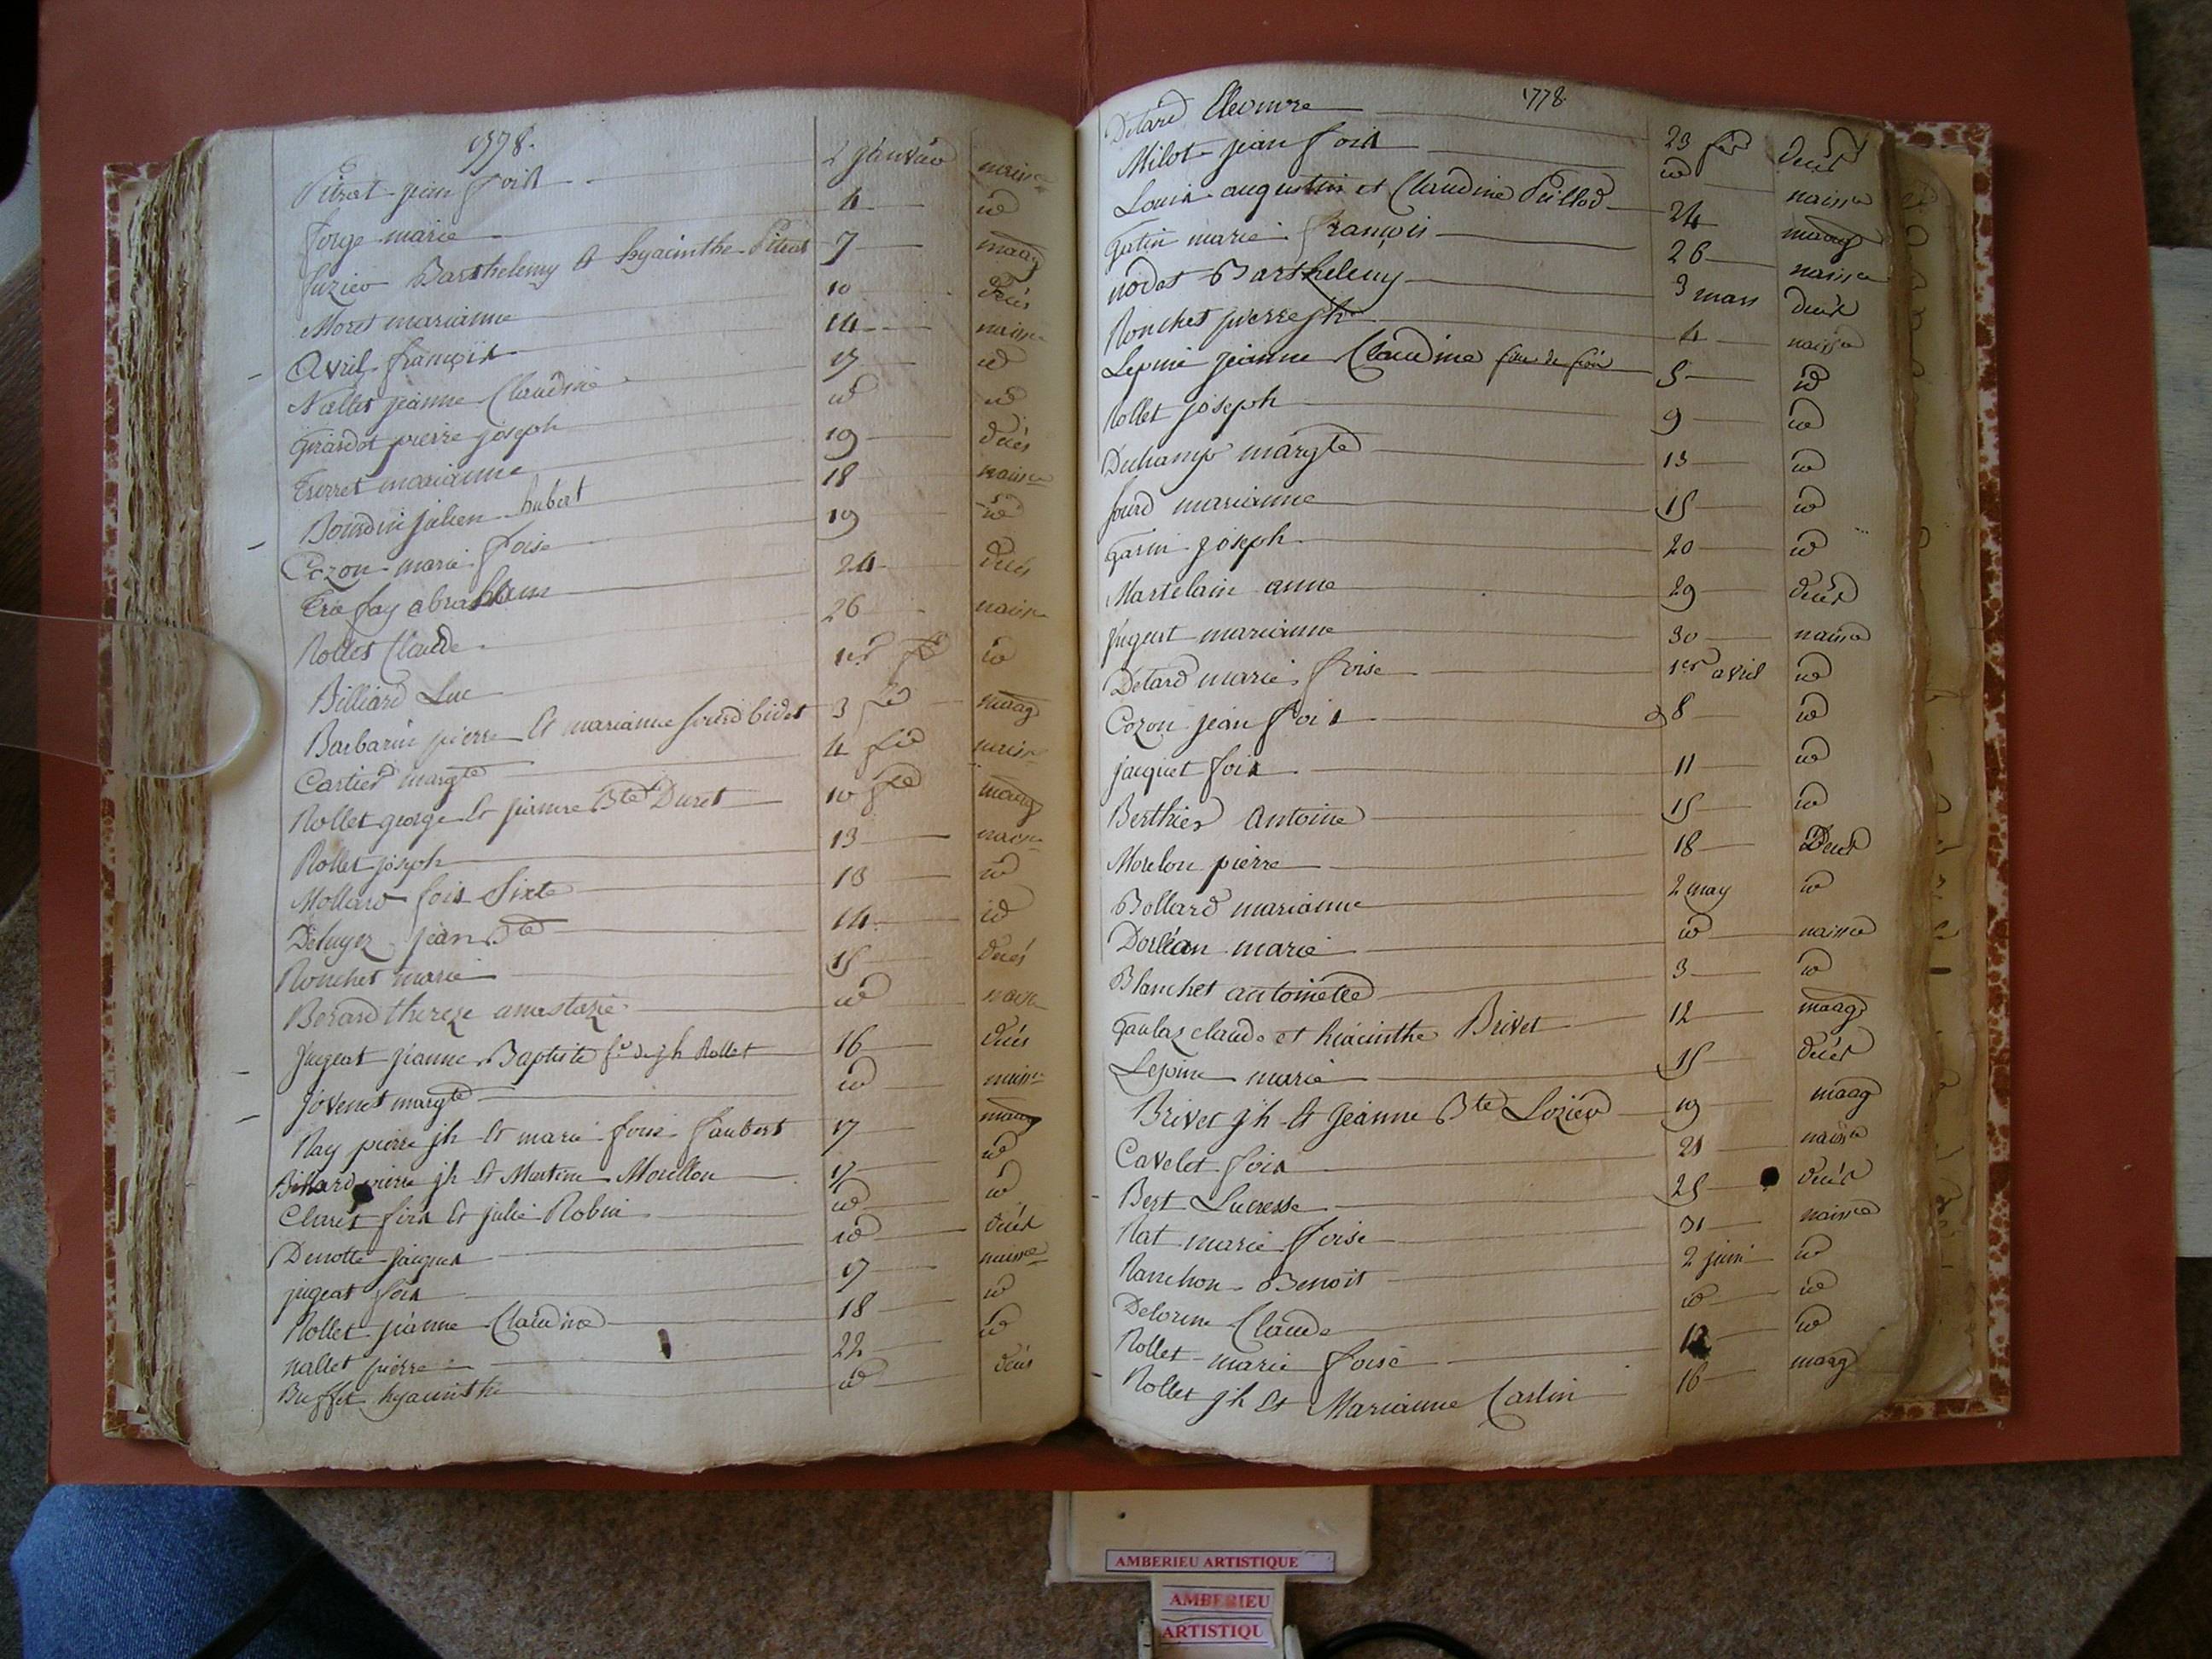 1778.
Pitrat jean fois 2 janvier naissce
forge marie 4 id
Luzieu Barthelemy et hyacinthe Pitrat 7 maag
Moret marianne 10 décès
Avril françois 14 naissce
Nallet jeanne Claudine 17 id
Girardot pierre joseph id id
marianne 19 décès
Bourdin julien hubert 18 naissce
Cozon marie foise 19 id
abraham 24 décès
Rollet Claude 26 naissce
Billiard Luc 1er id
Barbarin pierre et marianne 3 maag
Cartier margte 4 naissce
Rollet george et jeanne Bte Duret 10 maag
Rollet joseph 13 naissce
Mollard fois Sixte 13 id
jean Bte 14 id
Ronchet marie 15 décès
Borard thereze anastazie id naissce
Jugeat jeanne Baptiste fe de jh Rollet 16 décès
jovenet margte id naissce
Ray pierre jh et marie foise Jaubert 17 maag
Billiard pierre jh et Morellon 17 id
Claret fois et julie Robin id id
Denotte jacques id décès
jugeat fois 17 naissce
Rollet jeanne Claudine 18 id
nallet pierre 22 id
Buffet hyacinthe id décès
1778.
Détard Eleonore 23 décès
Milot jean fois id naissce
Louis augustin et Claudine 24 maag
Gatin marie françois 26 naissce
nodet Barthelemy 3 mars décès
Ronchet pierre jh 4 naissce
Lepine jeanne Claudine fille de 5 id
Rollet joseph 9 id
Duchamp margte 13 id
marianne 15 id
Garin joseph 20 id
Martelain anne 29 décès
Jugeat marianne 30 naissce
Détard marie foise 1er avril id
Cozon jean fois 8 id
jacquet fois 11 id
Berthier Antoine 15 id
Morelon pierre 18 Décès
Bollard marianne 2 may id
Dorléan marie id naissce
Blanchet antoinette 3 id
Gaulaz claude et hiacinthe Brivet 12 maag
Lepine marie 15 décès
Brivet jh et Jeanne Bte Lozieu 19 maag
Cavelet fois 21 naissce
Bert Lucresse 25 décès
Rat marie foise 31 naissce
Ranchon Benoit 2 juin id
Delorme Claude id id
Rollet marie foise id
Rollet jh et Marianne Carlin 16 maag
AMBERIEU ARTISTIQUE
AMBERIEU
ARTISTIQU